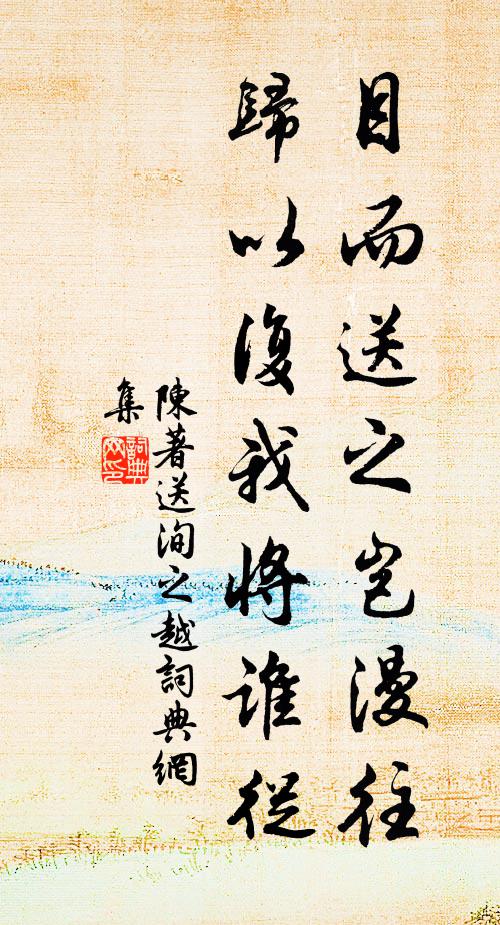 目而送之豈漫往
歸以復我將誰從
陳著送洵之越詞典網
集
詞典